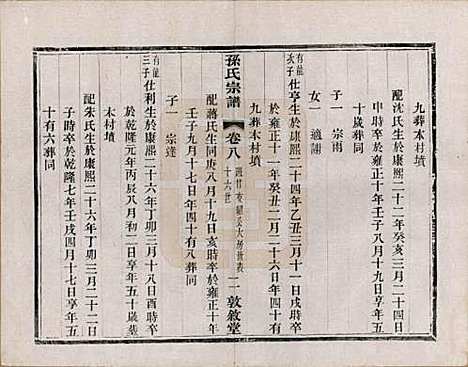 九葬本村墳
配沈氏生於康熙二十二年癸亥三月二十四日
申時卒於雍正十年壬子八月九日申時享年五
十歲葬同
子一　宗雨
女一　適
有能次子　仕亨生於康熙二十四年乙丑三月十一日戌時
卒於雍正十一年癸丑二月三十日　時享年四十
九葬本村墳
孫氏宗譜　卷八　十六世　敦敘堂
配蔣氏生同庚八月十九日亥時卒於雍正十年
九月十七日　時享年四十八葬同
子一　宗達
有能三子　仕利生於康熙二十六年丁卯三月十八日酉時卒
於乾隆元年丙辰八月初一日　時享年五十歲葬
本村墳
配朱氏生於康熙二十六年丁卯三月二十二日
子時卒於乾隆七年壬戌四月十七日　時享年五
十有六葬同